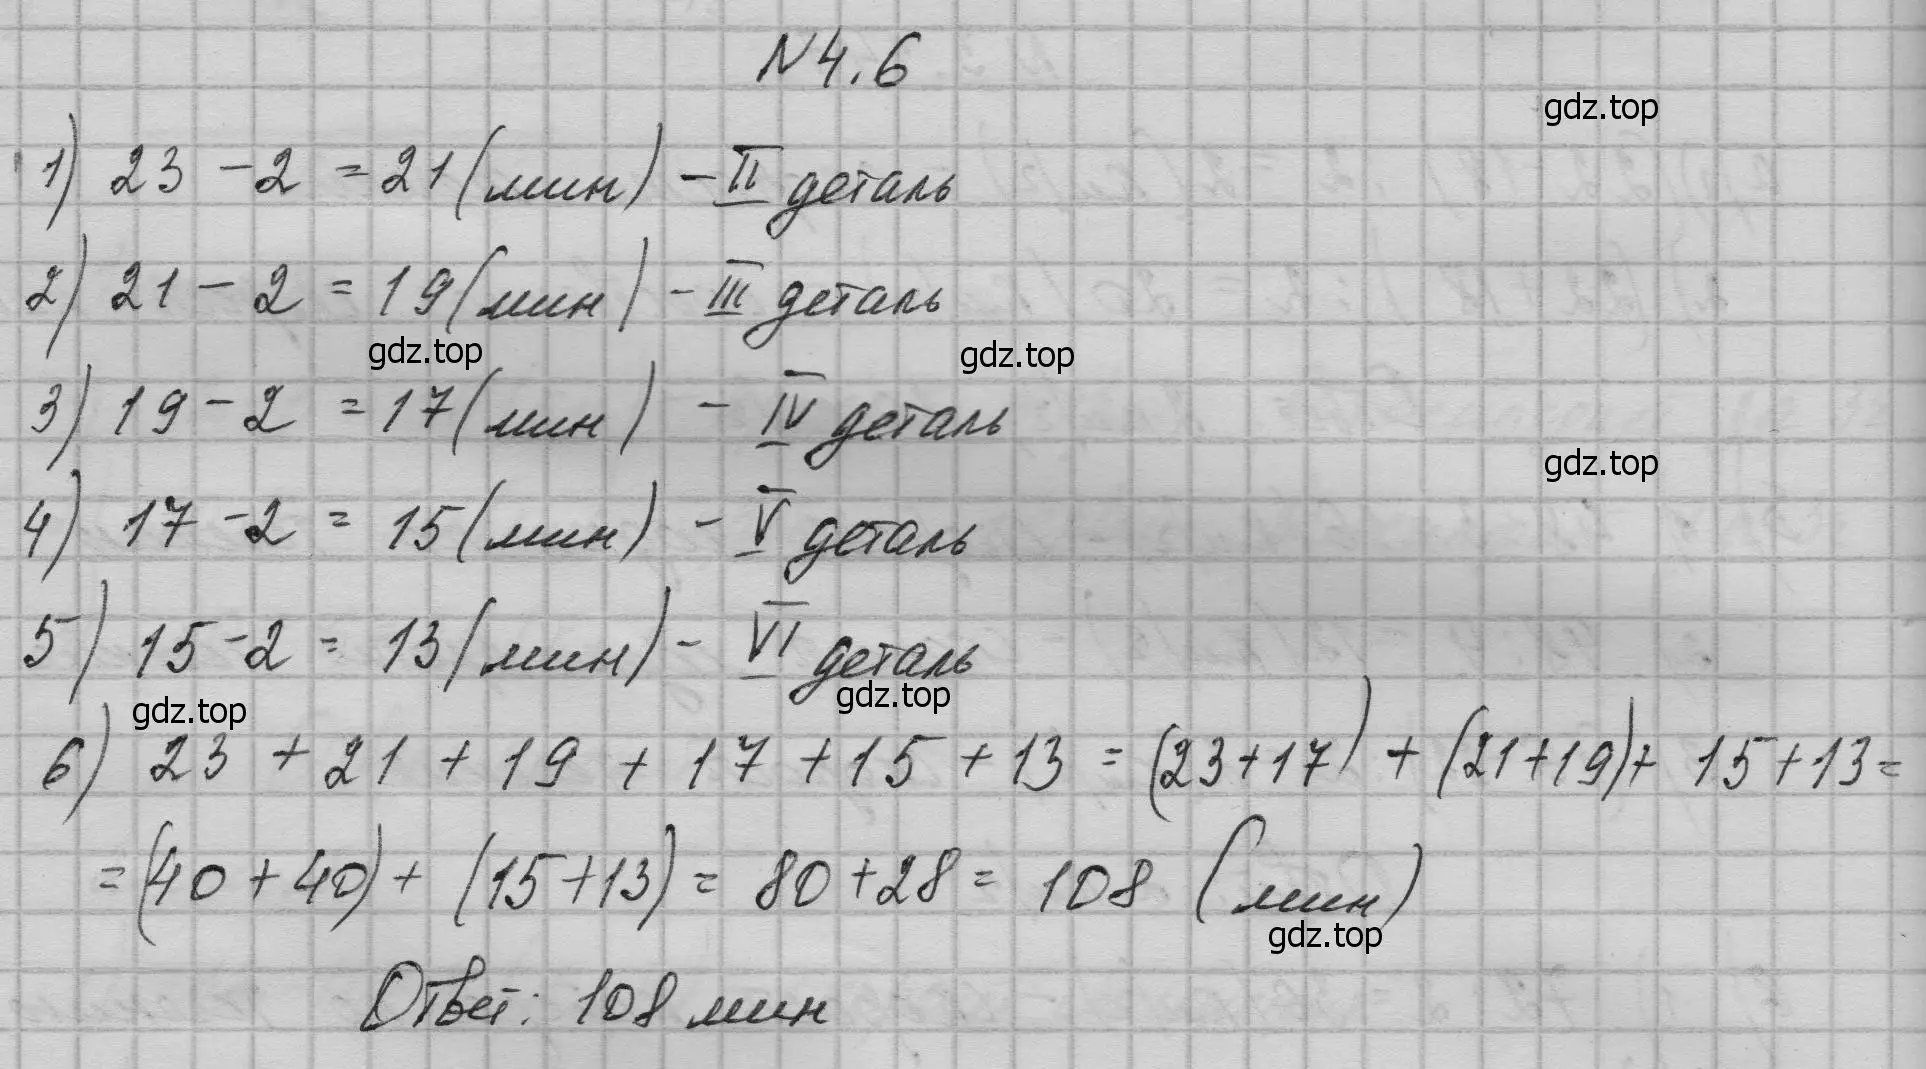 N4.6
gdz.top
1) 23 - 2 = 21 (мин) - II деталь
2) 21 - 2 = 19 (мин) - III деталь
gdz.top gdz.top
3) 19 - 2 = 17 (мин) - IV деталь
gdz.top
4) 17 - 2 = 15 (мин) - V деталь
5) 15 - 2 = 13 (мин) - VI деталь
gdz.top gdz.top
6) 23 + 21 + 19 + 17 + 15 + 13 = (23+17) + (21+19) + 15+13 =
= (40 + 40) + (15+13) = 80 + 28 = 108 (мин)
gdz.top
Ответ: 108 мин